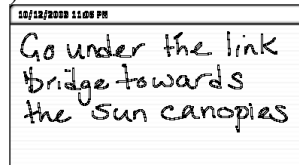 10/12/2023 11:06 PM
Go under the link
bridge towards
the sun canopies